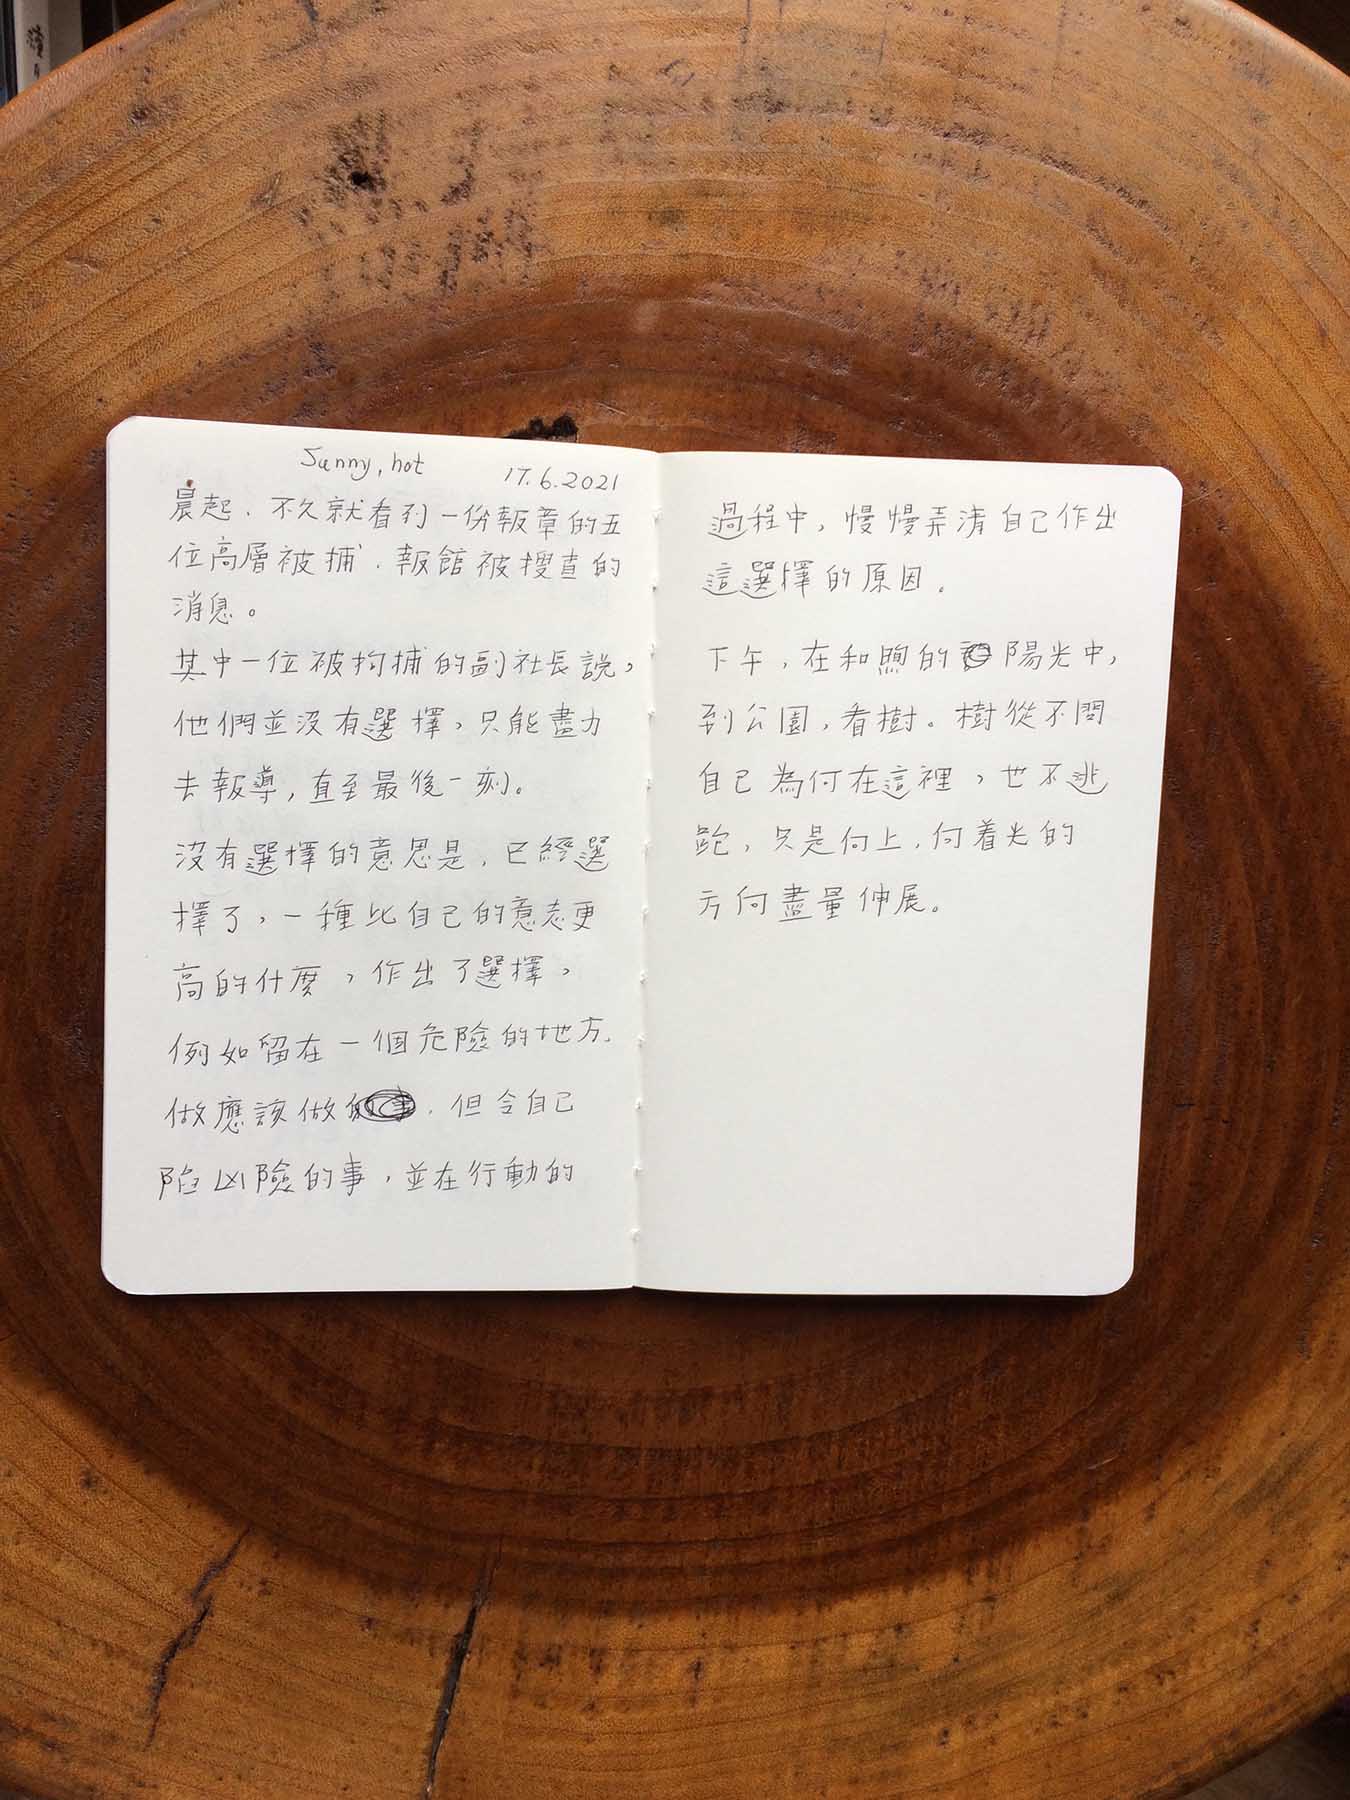 Sunny, hot 17.6.2021
晨起、不久就看到一份報章的五
位高層被捕、報館被搜查的
消息。
其中一位被拘捕的副社長說，
他們並沒有選擇，只能盡力
去報導，直至最後一刻。
沒有選擇的意思是，已經選
擇了，一種比自己的意志更
高的什麼，作出了選擇，
例如留在一個危險的地方，
做應該做，但令自己
陷凶險的事，並在行動的
過程中，慢慢弄清自己作出
這選擇的原因。
下午，在和煦的陽光中，
到公園，看樹。樹從不問
自己為何在這裡，也不逃
跑，只是向上，向着光的
方向盡量伸展。